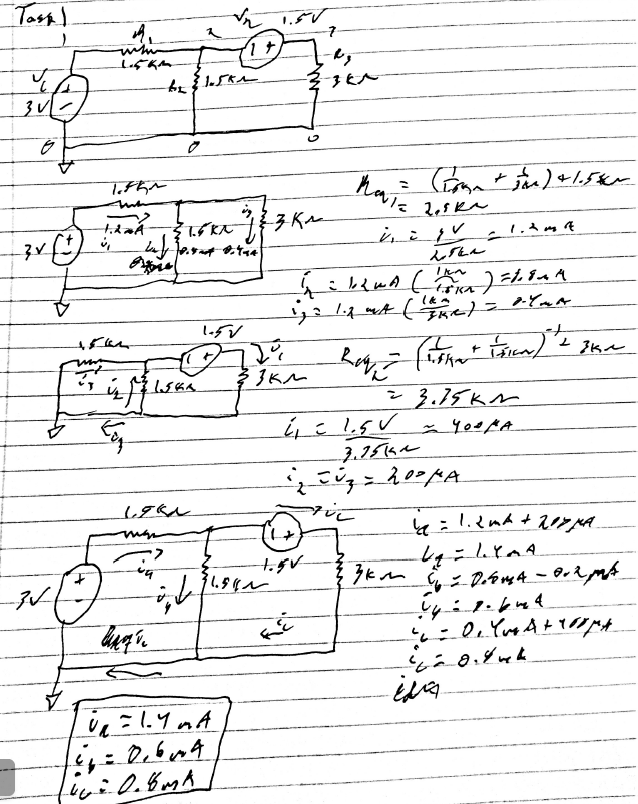 Task 1
1 R₁ 2 V₂ 1.5V 3
1.5KΩ R₃
V₁ R₂ 1.5KΩ 3KΩ
3V
0 0 0
1.5KΩ
Req₁ = (1/1.5KΩ + 1/3KΩ) + 1.5KΩ
= 2.5KΩ
1.2mA 1.5KΩ i₃ 3KΩ
3V i₁ i₂ 0.4mA
i₁ = 3V/2.5KΩ = 1.2mA
i₂ = 1.2mA (1KΩ/1.5KΩ) = 0.8mA
i₃ = 1.2mA (1KΩ/3KΩ) = 0.4mA
1.5KΩ 1.5V i₁
i₃ i₂ 1.5KΩ 3KΩ
i₃
Req₂ = (1/1.5KΩ + 1/1.5KΩ)⁻¹ + 3KΩ
= 3.75KΩ
i₁ = 1.5V/3.75KΩ = 400μA
i₂ = i₃ = 200μA
1.5KΩ ic
1.5V
3V ia ib 1.5KΩ 3KΩ
ic
ia = 1.2mA + 200μA
ia = 1.4mA
ib = 0.8mA - 0.2mA
ib = 0.6mA
ic = 0.4mA + 400μA
ic = 0.8mA
ia = 1.4mA
ib = 0.6mA
ic = 0.8mA